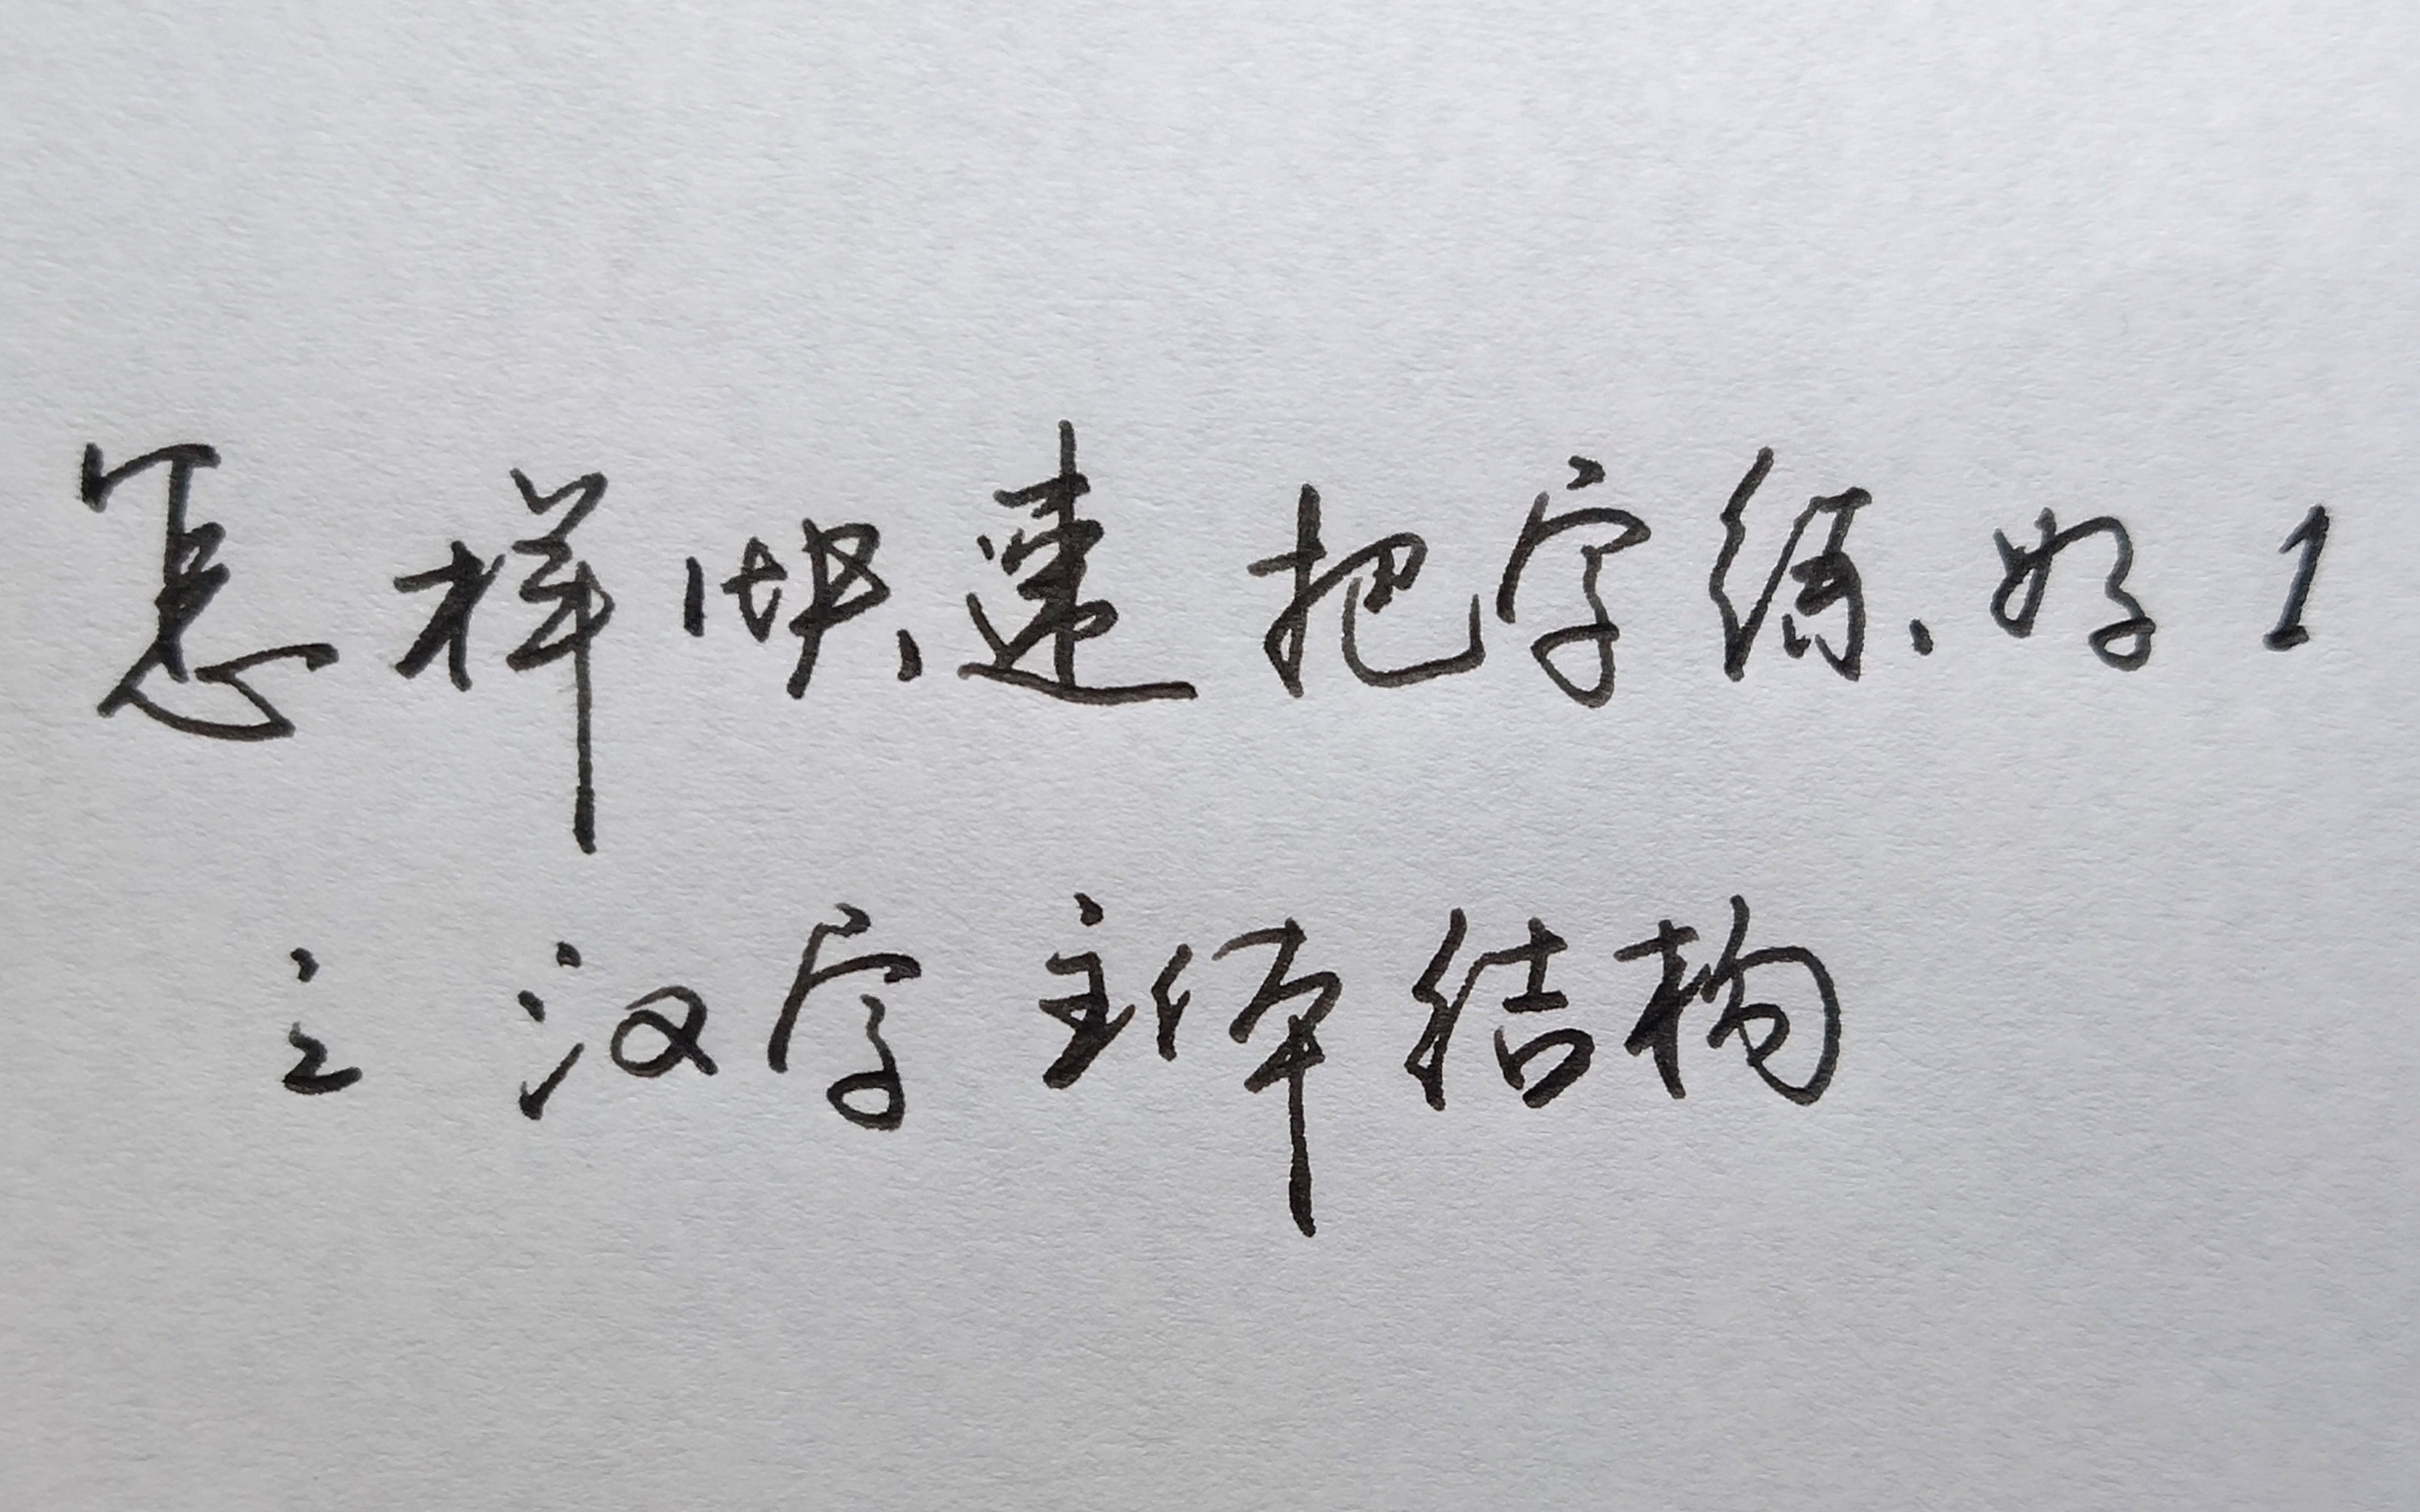 怎样快速把字练好1
之汉字主体结构